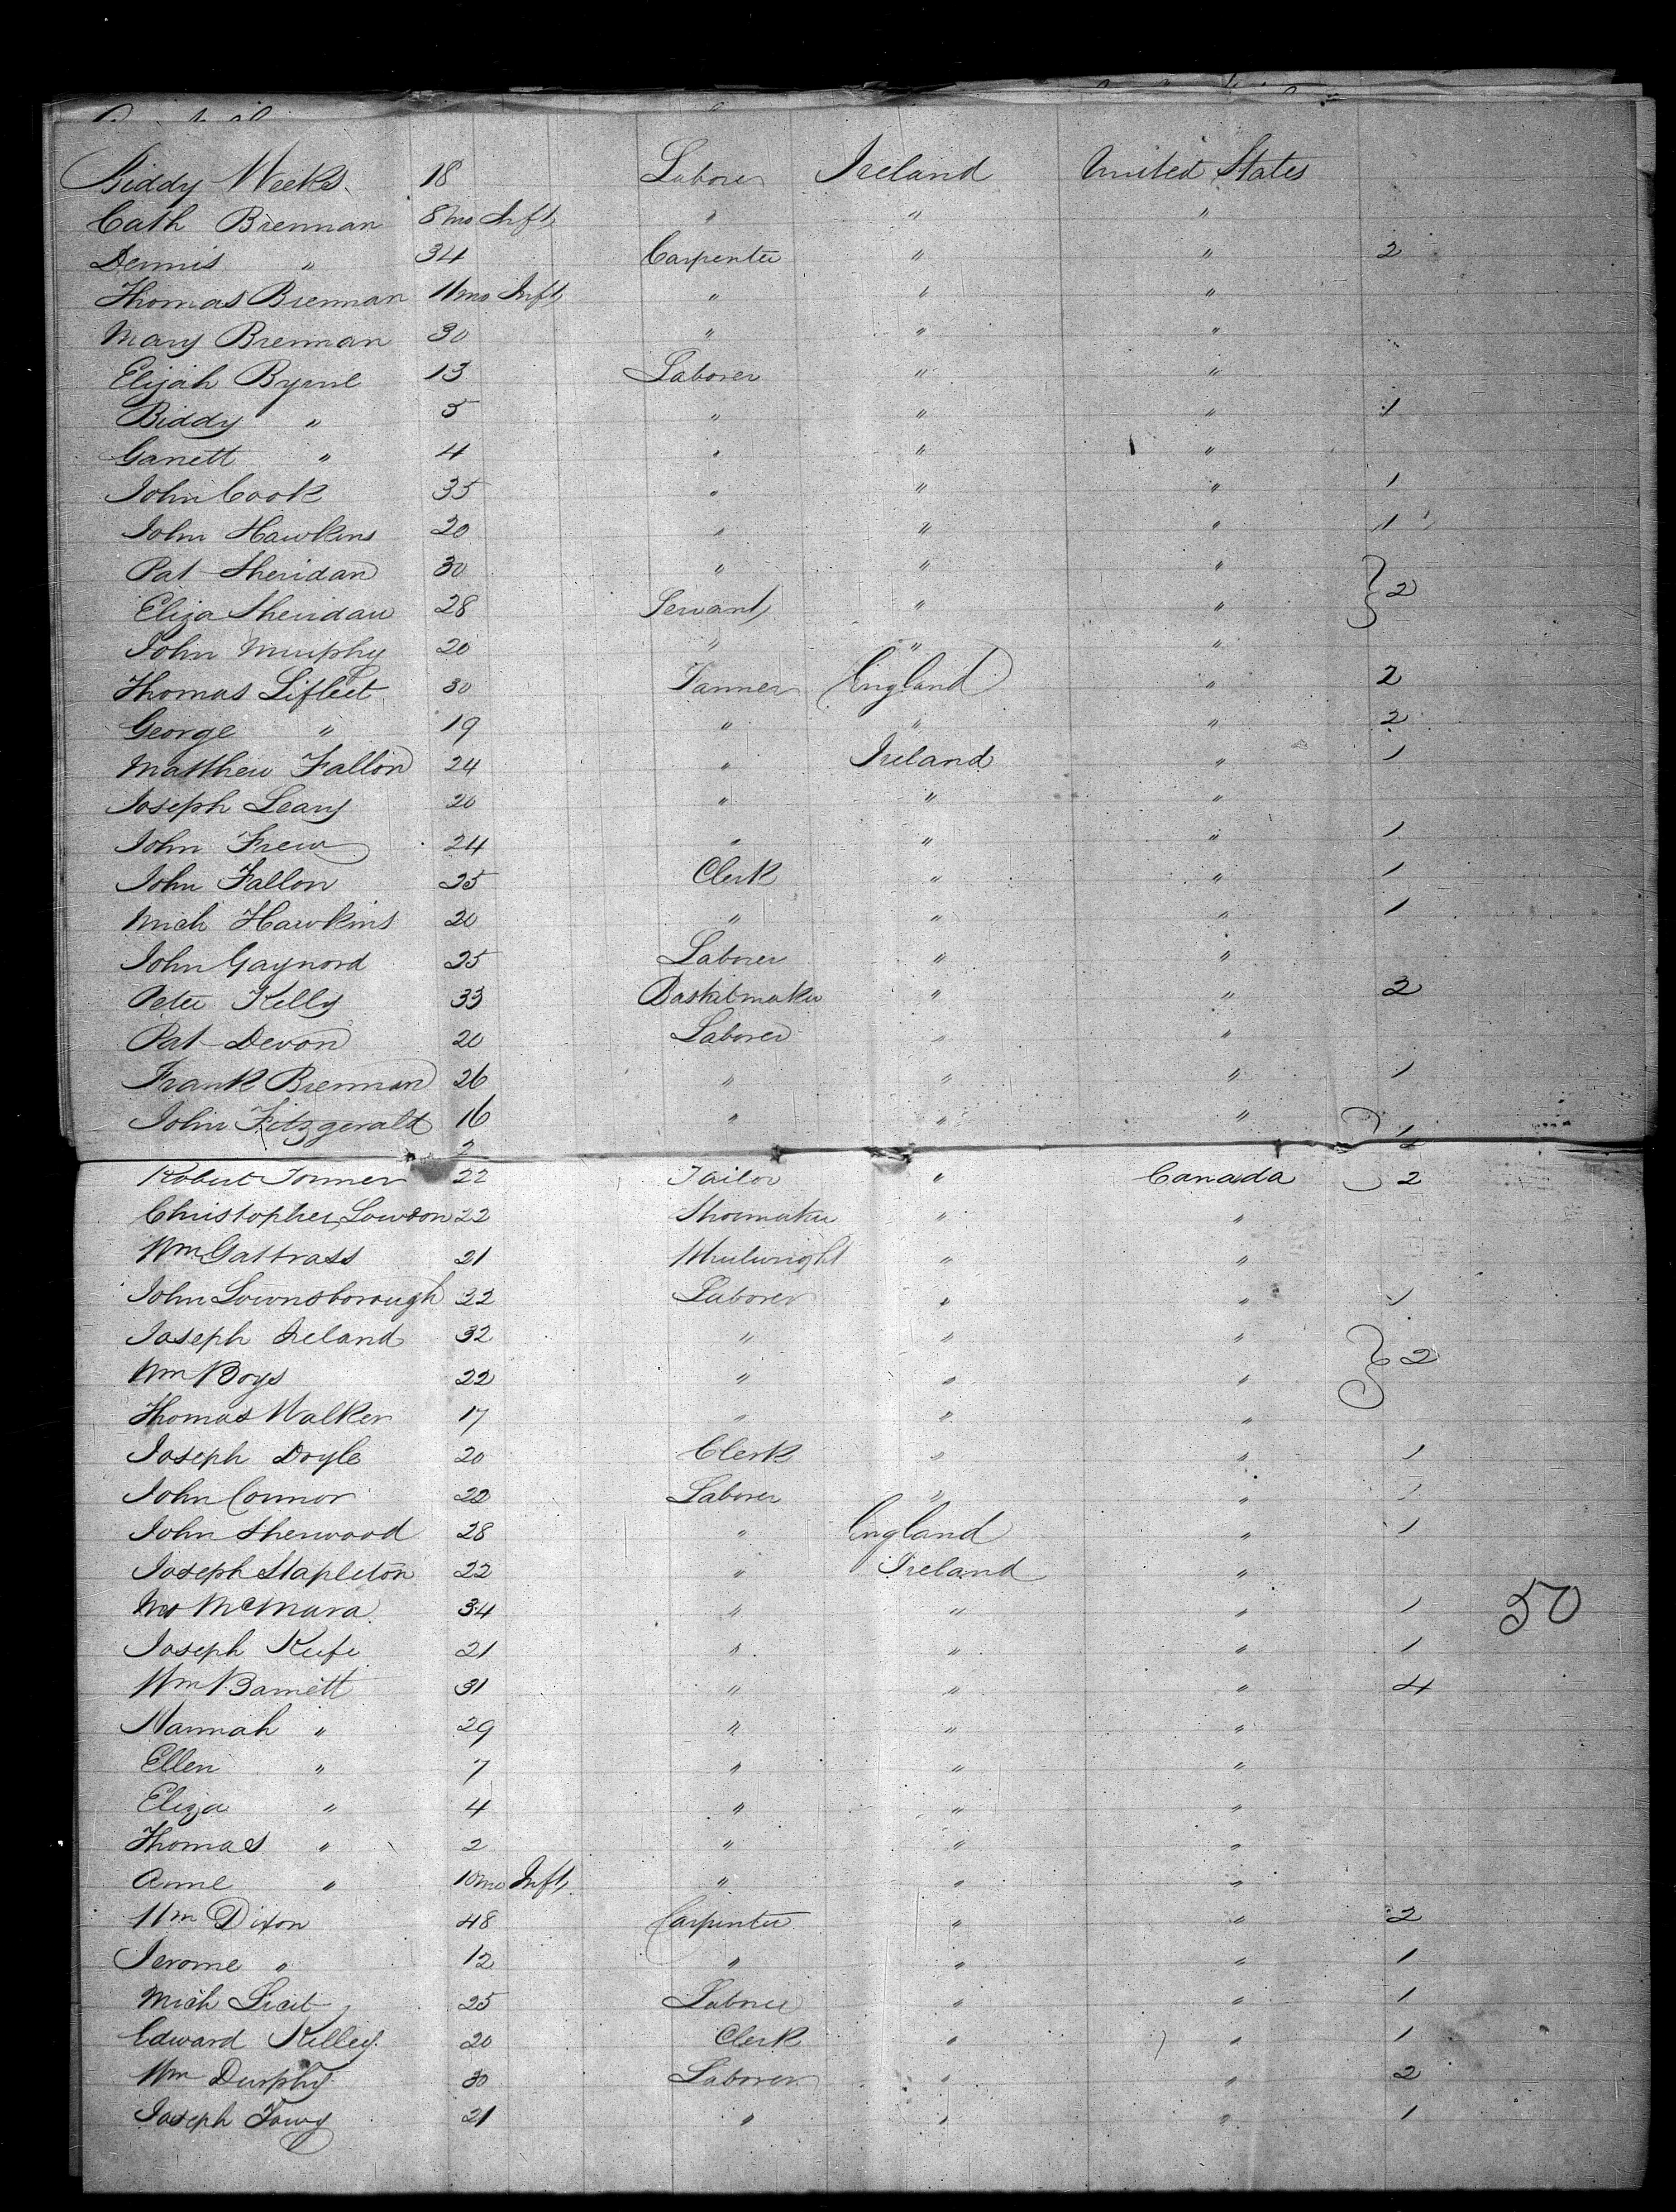 Biddy Weeks 18 Laborer Ireland United States
Cath Brennan 8 mo Inft " " "
Dennis " 34 Carpenter " " 2
Thomas Brennan 11 mo Inft " " "
Mary Brennan 30 " " "
Elijah Byrne 13 Laborer " "
Biddy " 5 " " " 1
Garrett " 4 " " "
John Cook 35 " " " 1
John Hawkins 20 " " " 1
Pat Sheridan 30 " " "
Eliza Sheridan 28 Servant " " } 2
John Murphy 20 " " "
Thomas Lifleet 30 Tanner England " 2
George " 19 " " " 2
Matthew Fallon 24 " Ireland " 1
Joseph Leary 20 " " "
John Frew 24 " " " 1
John Fallon 25 Clerk " " 1
Mich Hawkins 20 " " " 1
John Gaynord 25 Laborer " "
Peter Kelly 33 Basketmaker " " 2
Pat Devon 20 Laborer " "
Frank Brennan 26 " " " 1
John Fitzgerald 16 " " "
2
Robert 22 Tailor " Canada 2
Christopher Lowson 22 Shoemaker " "
Wm Gattrass 21 Wheelwright " "
John Lownsborough 22 Laborer " " 1
Joseph Ireland 32 " " "
Wm Boys 22 " " " } 2
Thomas Walker 17 " " "
Joseph Doyle 20 Clerk " " 1
John Connor 22 Laborer " " 1
John Sherwood 28 " England " 1
Joseph Stapleton 22 " Ireland "
McMara 34 " " " 1 50
Joseph Keefe 21 " " " 1
Wm Barnett 31 " " " 4
Hannah " 29 " " "
Ellen " 7 " " "
Eliza " 4 " " "
Thomas " 2 " " "
Anne " 10 mo Inft " " "
Wm Dixon 48 Carpenter " " 2
Jerome " 12 " " " 1
Mich 25 Laborer " " 1
Edward Killey 20 Clerk " " 1
Wm Durphy 30 Laborer " " 2
Joseph 21 " " " 1